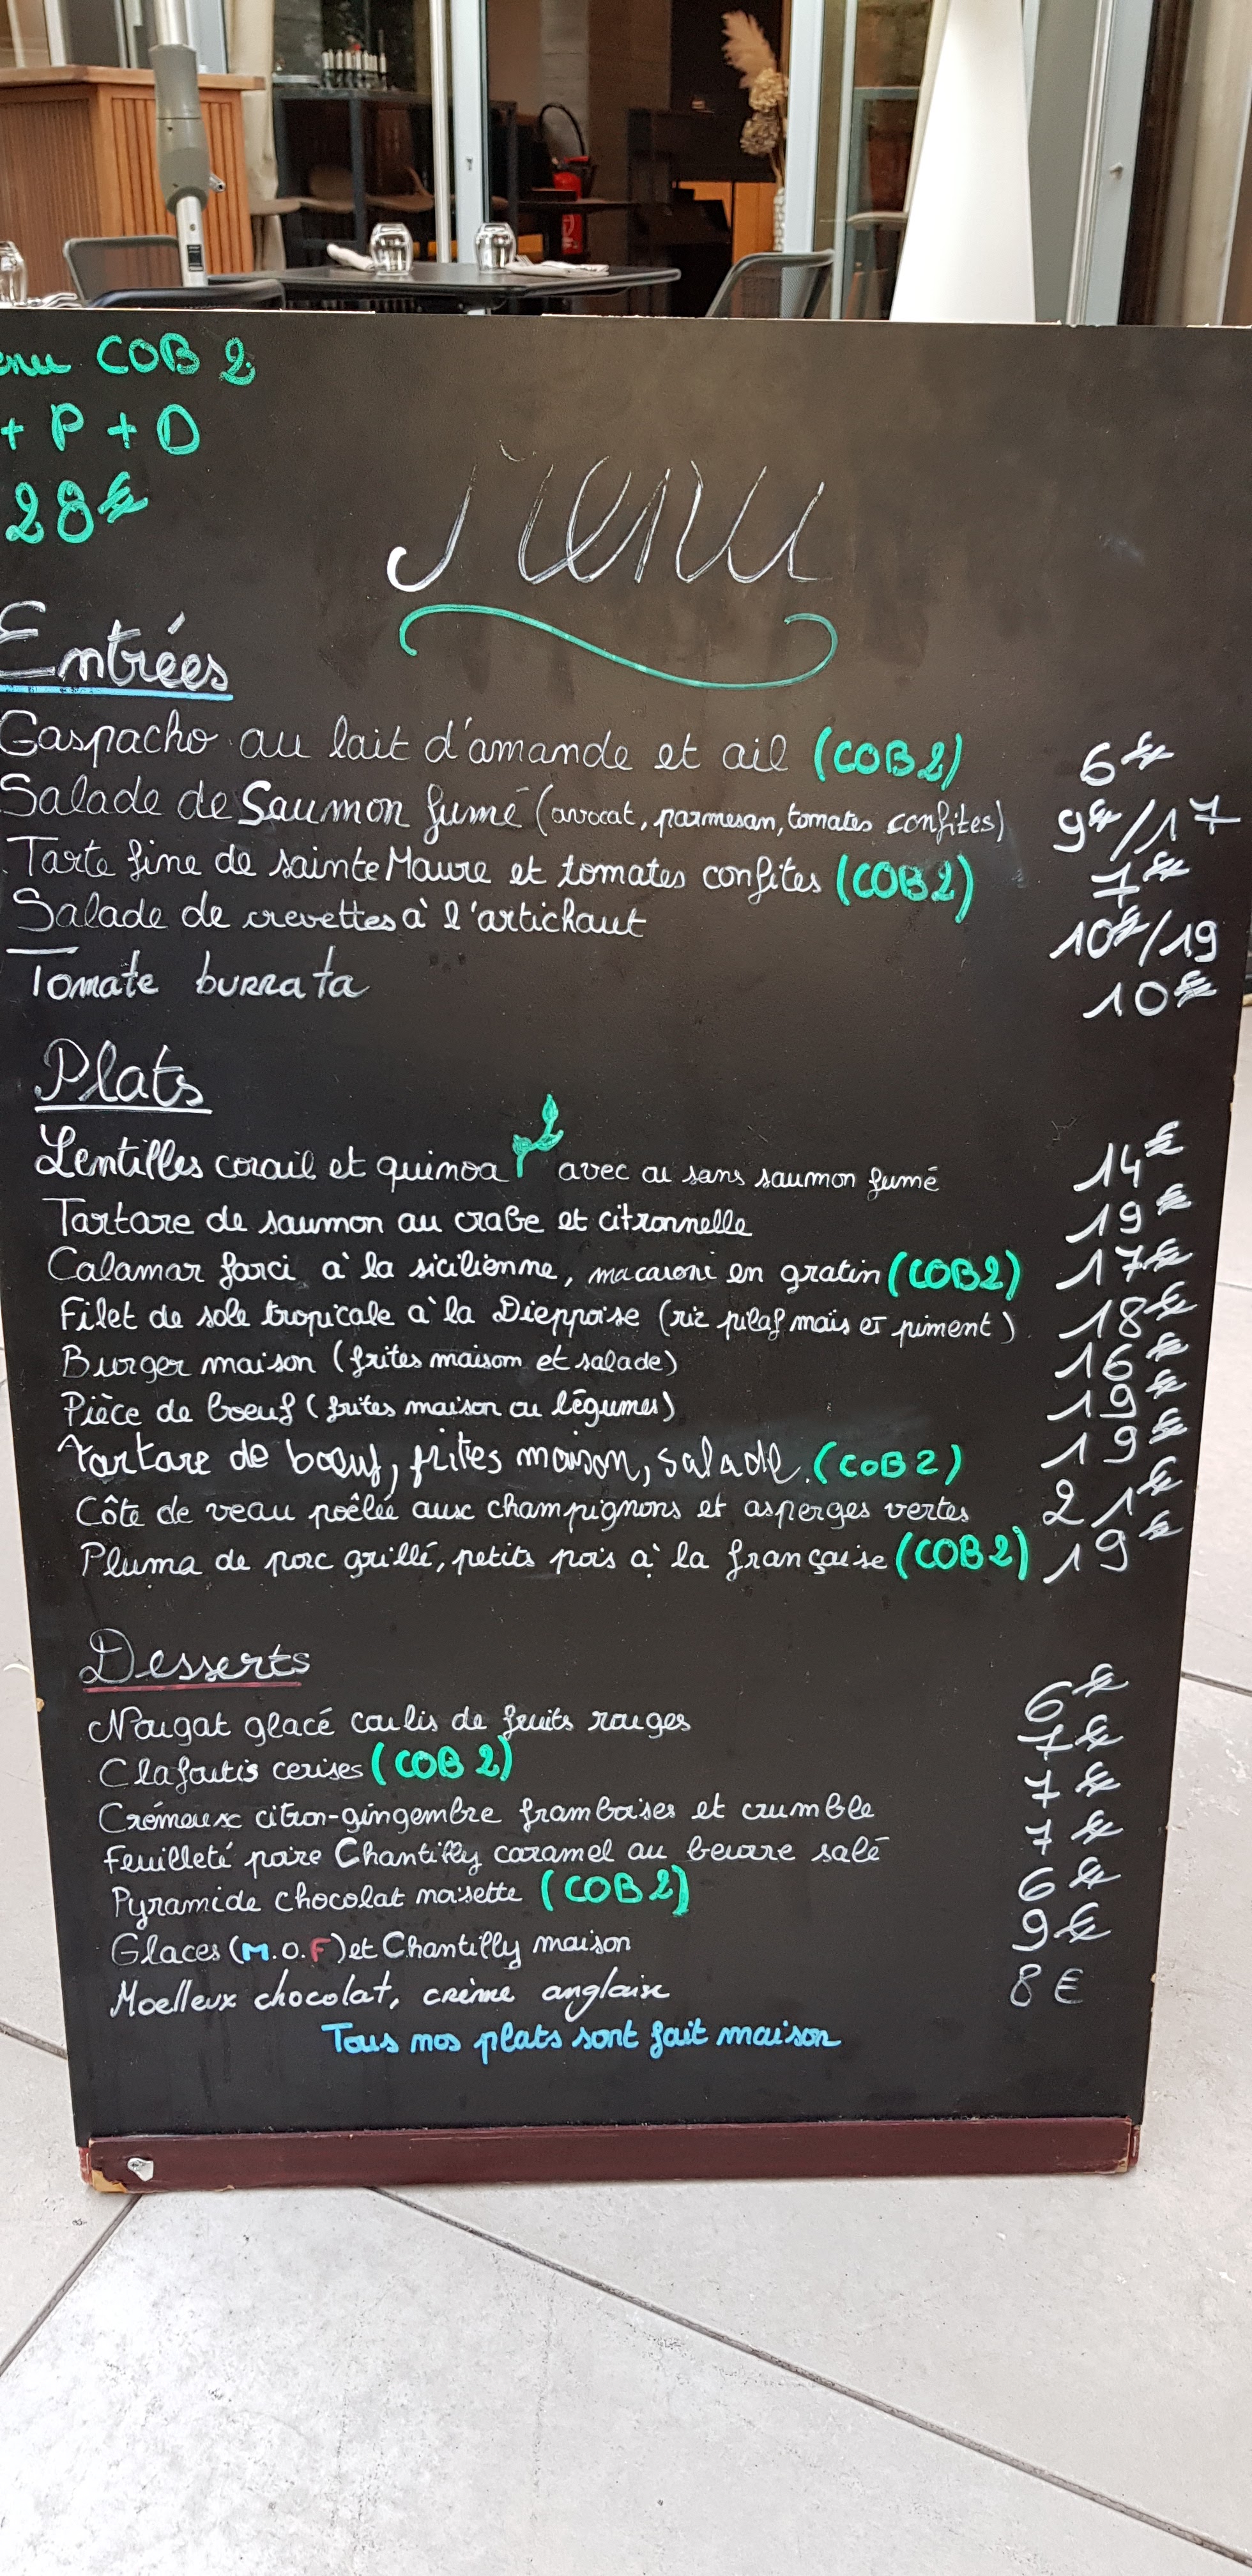 enu COB 2
+ P + D
28€
Menu
Entrées
Gaspacho au lait d'amande et ail (COB2) 6€
Salade de Saumon fumé (avocat, parmesan, tomates confites) 9€/17
Tarte fine de sainte Maure et tomates confites (COB2) 7€
Salade de crevettes à l'artichaut 10€/19
Tomate burrata 10€
Plats
Lentilles corail et quinoa avec ou sans saumon fumé 14€
Tartare de saumon au crabe et citronnelle 19€
Calamar farci à la sicilienne, macaroni en gratin (COB2) 17€
Filet de sole tropicale à la Dieppoise (riz pilaf maïs et piment) 18€
Burger maison (frites maison et salade) 16€
Pièce de boeuf (frites maison ou légumes) 19€
Tartare de bœuf, frites maison, salade. (COB2) 19€
Côte de veau poêlée aux champignons et asperges vertes 21€
Pluma de porc grillé, petits pois à la française (COB2) 19€
Desserts
Nougat glacé coulis de fruits rouges 6€
Clafoutis cerises (COB 2) 7€
Crémeux citron-gingembre framboises et crumble 7€
Feuilleté poire Chantilly caramel au beurre salé 7€
Pyramide chocolat noisette (COB2) 6€
Glaces (M.O.F) et Chantilly maison 9€
Moelleux chocolat, crème anglaise 8€
Tous nos plats sont fait maison